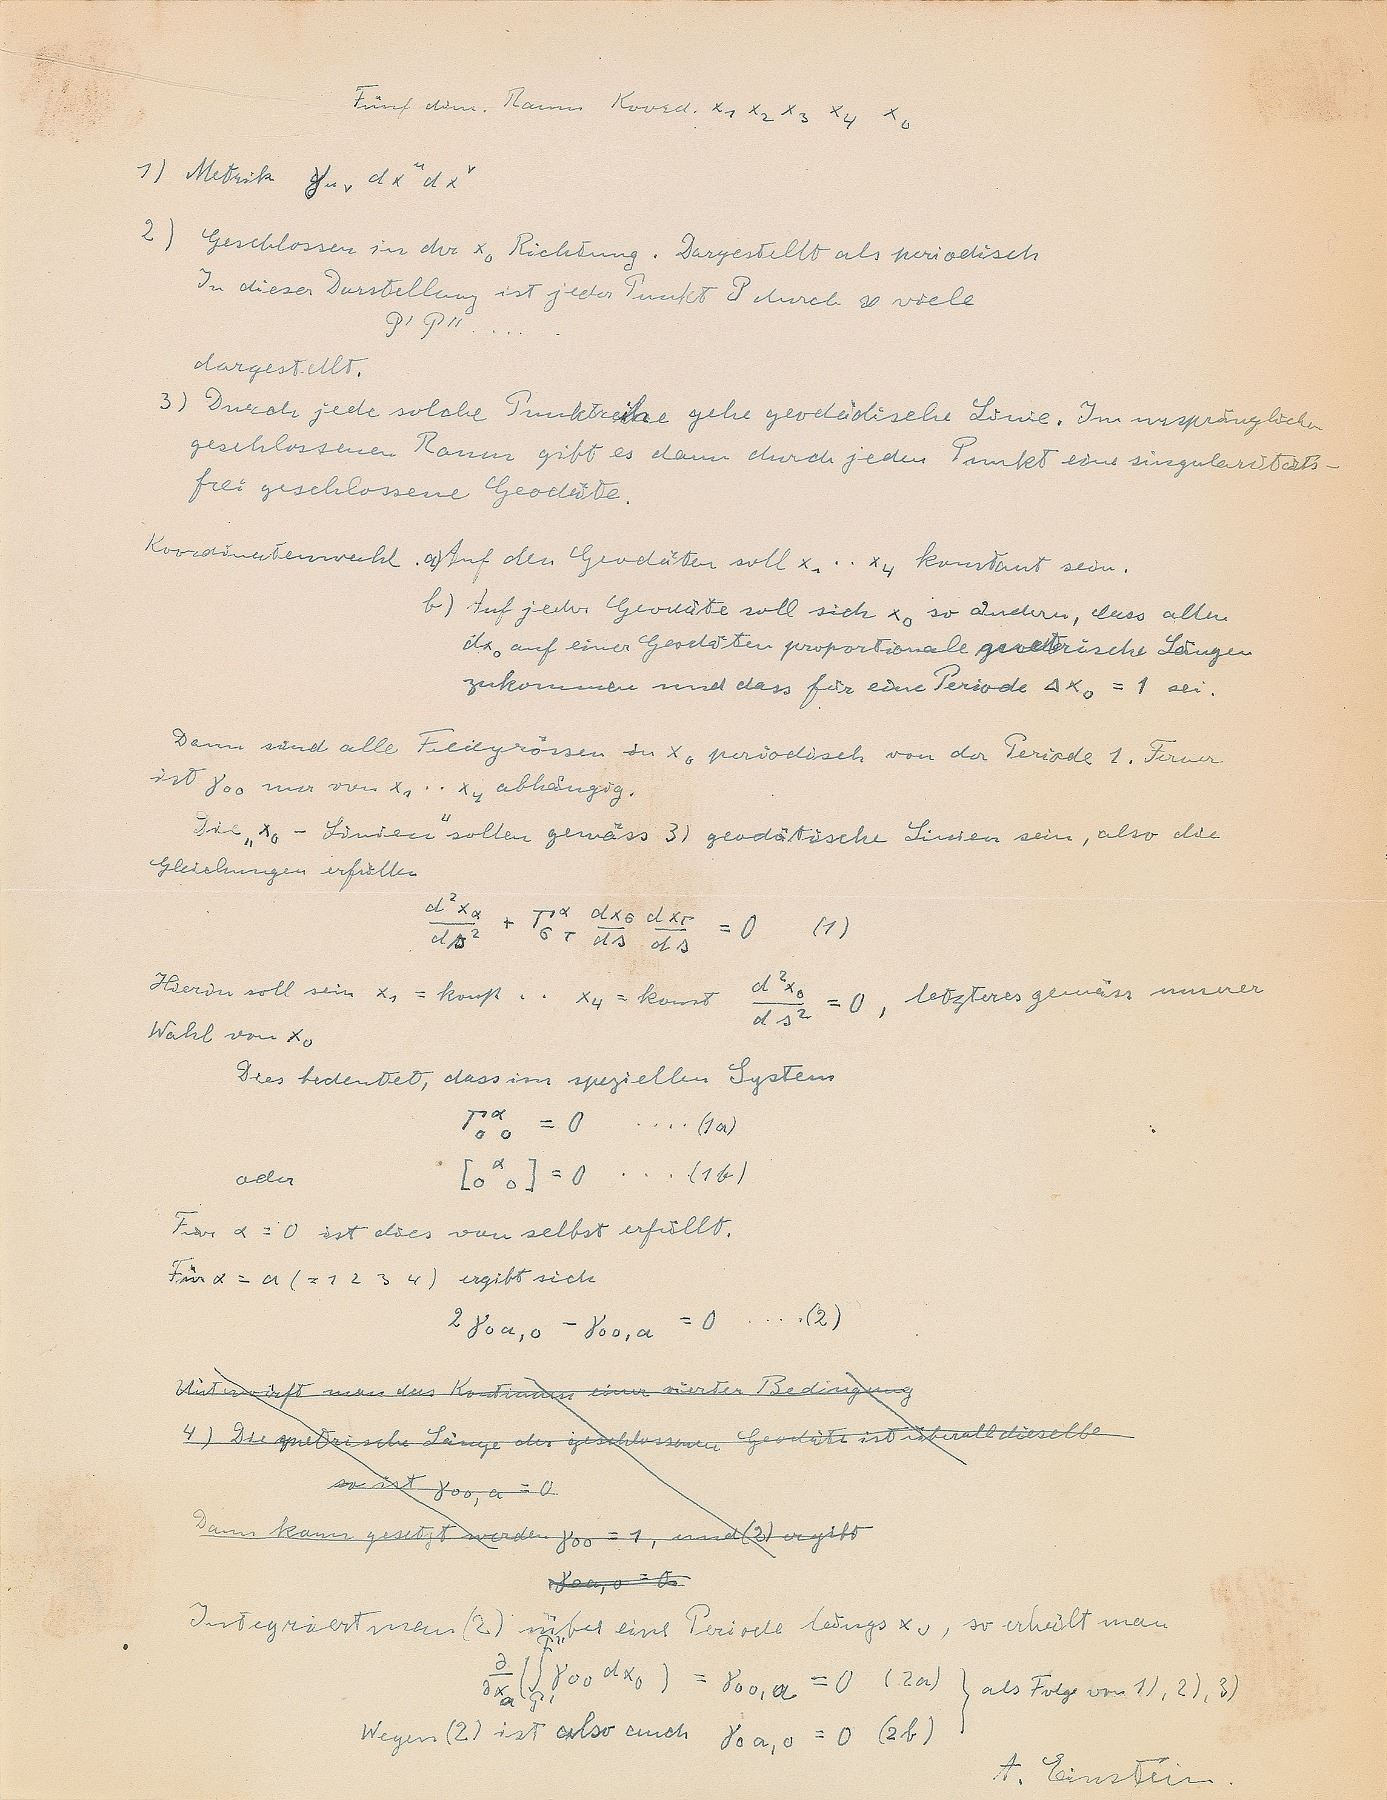 Fünf dim. Raum Koord. x₁ x₂ x₃ x₄ x₀
1) Metrik γ_{μν} dx^μ dx^ν
2) Geschlossen in der x₀ Richtung. Dargestellt als periodisch
In dieser Darstellung ist jeder Punkt P durch ∞ viele
P' P'' ....
dargestellt.
3) Durch jede solche Punktreihe gehe geodädische Linie. Im ursprünglichen
geschlossenen Raum gibt es dann durch jeden Punkt eine singularitäts-
frei geschlossene Geodäte.
Koordinatenwahl. a) Auf den Geodäten soll x₁ .. x₄ konstant sein.
b) Auf jeder Geodäte soll sich x₀ so ändern, dass allen
dx₀ auf einer Geodäten proportionale metrische Längen
zukommen und dass für eine Periode Δx₀ = 1 sei.
Dann sind alle Feldgrössen in x₀ periodisch von der Periode 1. Ferner
ist γ₀₀ nur von x₁ .. x₄ abhängig.
Die „x₀ - Linien" sollen gemäss 3) geodätische Linien sein, also die
Gleichungen erfüllen
d²x_α/ds² + Γ^α_{στ} dx_σ/ds dx_τ/ds = 0 (1)
Hierin soll sein x₁ = konst .. x₄ = konst d²x₀/ds² = 0, letzteres gemäss unserer
Wahl von x₀
Dies bedeutet, dass im speziellen System
Γ^α_{00} = 0 .... (1a)
oder [0 α 0] = 0 ... (1b)
Für α = 0 ist dies von selbst erfüllt.
Für α = a (= 1 2 3 4) ergibt sich
2 γ_{0a,0} − γ_{00,a} = 0 ....(2)
Unterwirft man das Kontinuum einer vierten Bedingung
4) Die metrische Länge der geschlossenen Geodäte ist überall dieselbe
so ist γ_{00,a} = 0
Dann kann gesetzt werden γ₀₀ = 1, und (2) ergibt
γ_{0a,0} = 0.
Integriert man (2) über eine Periode längs x₀, so erhält man
∂/∂x_a (∫_{P'}^{P''} γ₀₀ dx₀) = γ_{00,a} = 0 (2a) } als Folge von 1), 2), 3)
Wegen (2) ist also auch γ_{0a,0} = 0 (2b)
A. Einstein.